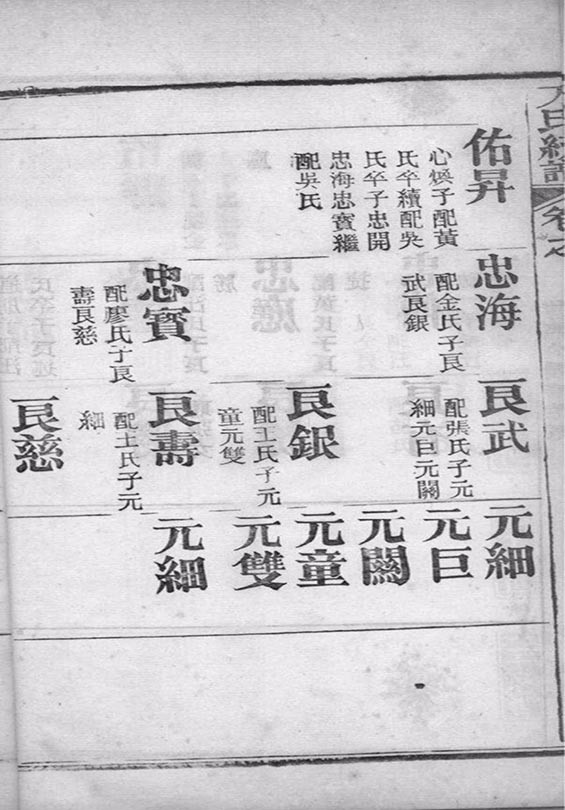 氏續譜
卷之
佑昇
心煥子配黃
氏卒續配吳
氏卒子忠開
忠海忠寶繼
配吳氏
忠海
配金氏子艮
武艮銀
忠寶
配廖氏子艮
壽艮慈
艮武
配張氏子元
細元巨元闊
艮銀
配王氏子元
童元雙
艮壽
配王氏子元
細
艮慈
元細
元巨
元闊
元童
元雙
元細